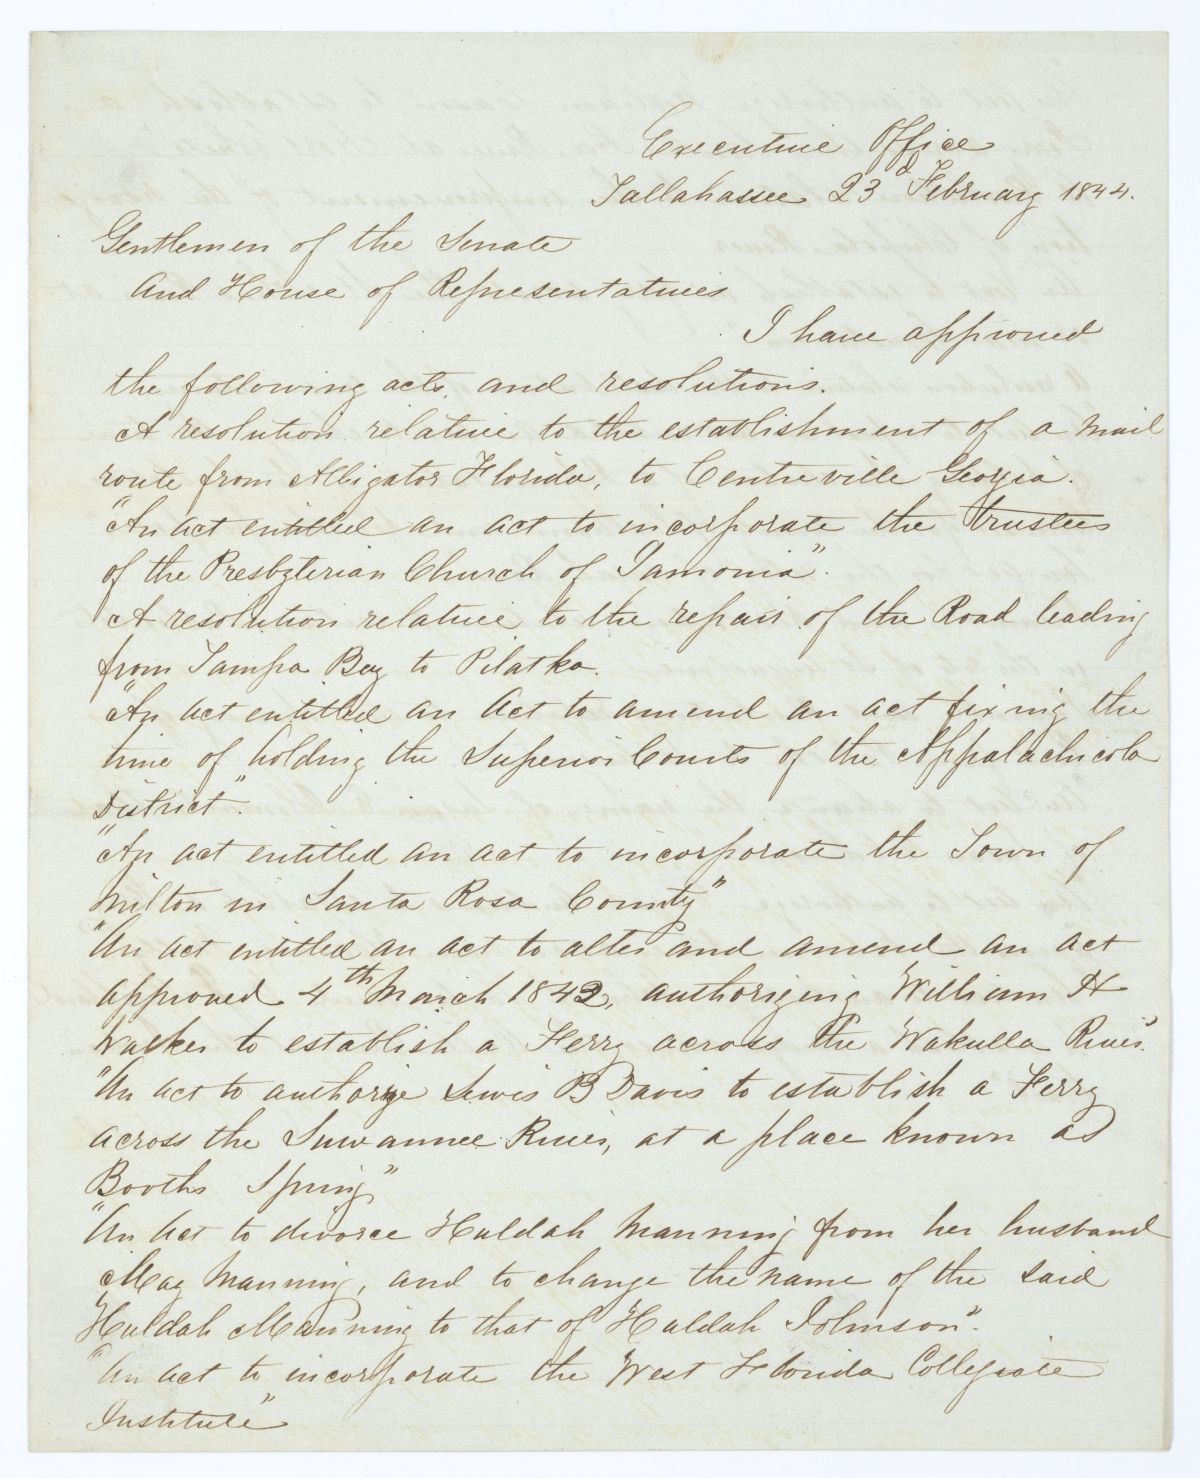 Executive Office
Tallahassee 23d February 1844.
Gentlemen of the Senate
And House of Representatives
I have approved
the following acts, and resolutions.
A resolution relative to the establishment of a mail
route from Alligator Florida, to Centreville Georgia.
"An act entitled an act to incorporate the trustees
of the Presbyterian Church of Iamonia".
A resolution relative to the repair of the Road leading
from Tampa Bay to Pilatka.
"An act entitled an Act to amend an act fixing the
time of holding the Superior Courts of the Appalachicola
District".
"An act entitled an act to incorporate the Town of
Milton in Santa Rosa County"
"An act entitled an act to alter and amend an act
approved 4th March 1842, authorizing William H
Walker to establish a Ferry across the Wakulla River".
"An act to authorize Lewis B Davis to establish a Ferry
across the Suwannee River, at a place known as
Booths Spring"
"An Act to divorce Huldah Manning from her husband
May Manning, and to change the name of the said
Huldah Manning to that of Huldah Johnson".
"An act to incorporate the West Florida Collegiate
Institute"